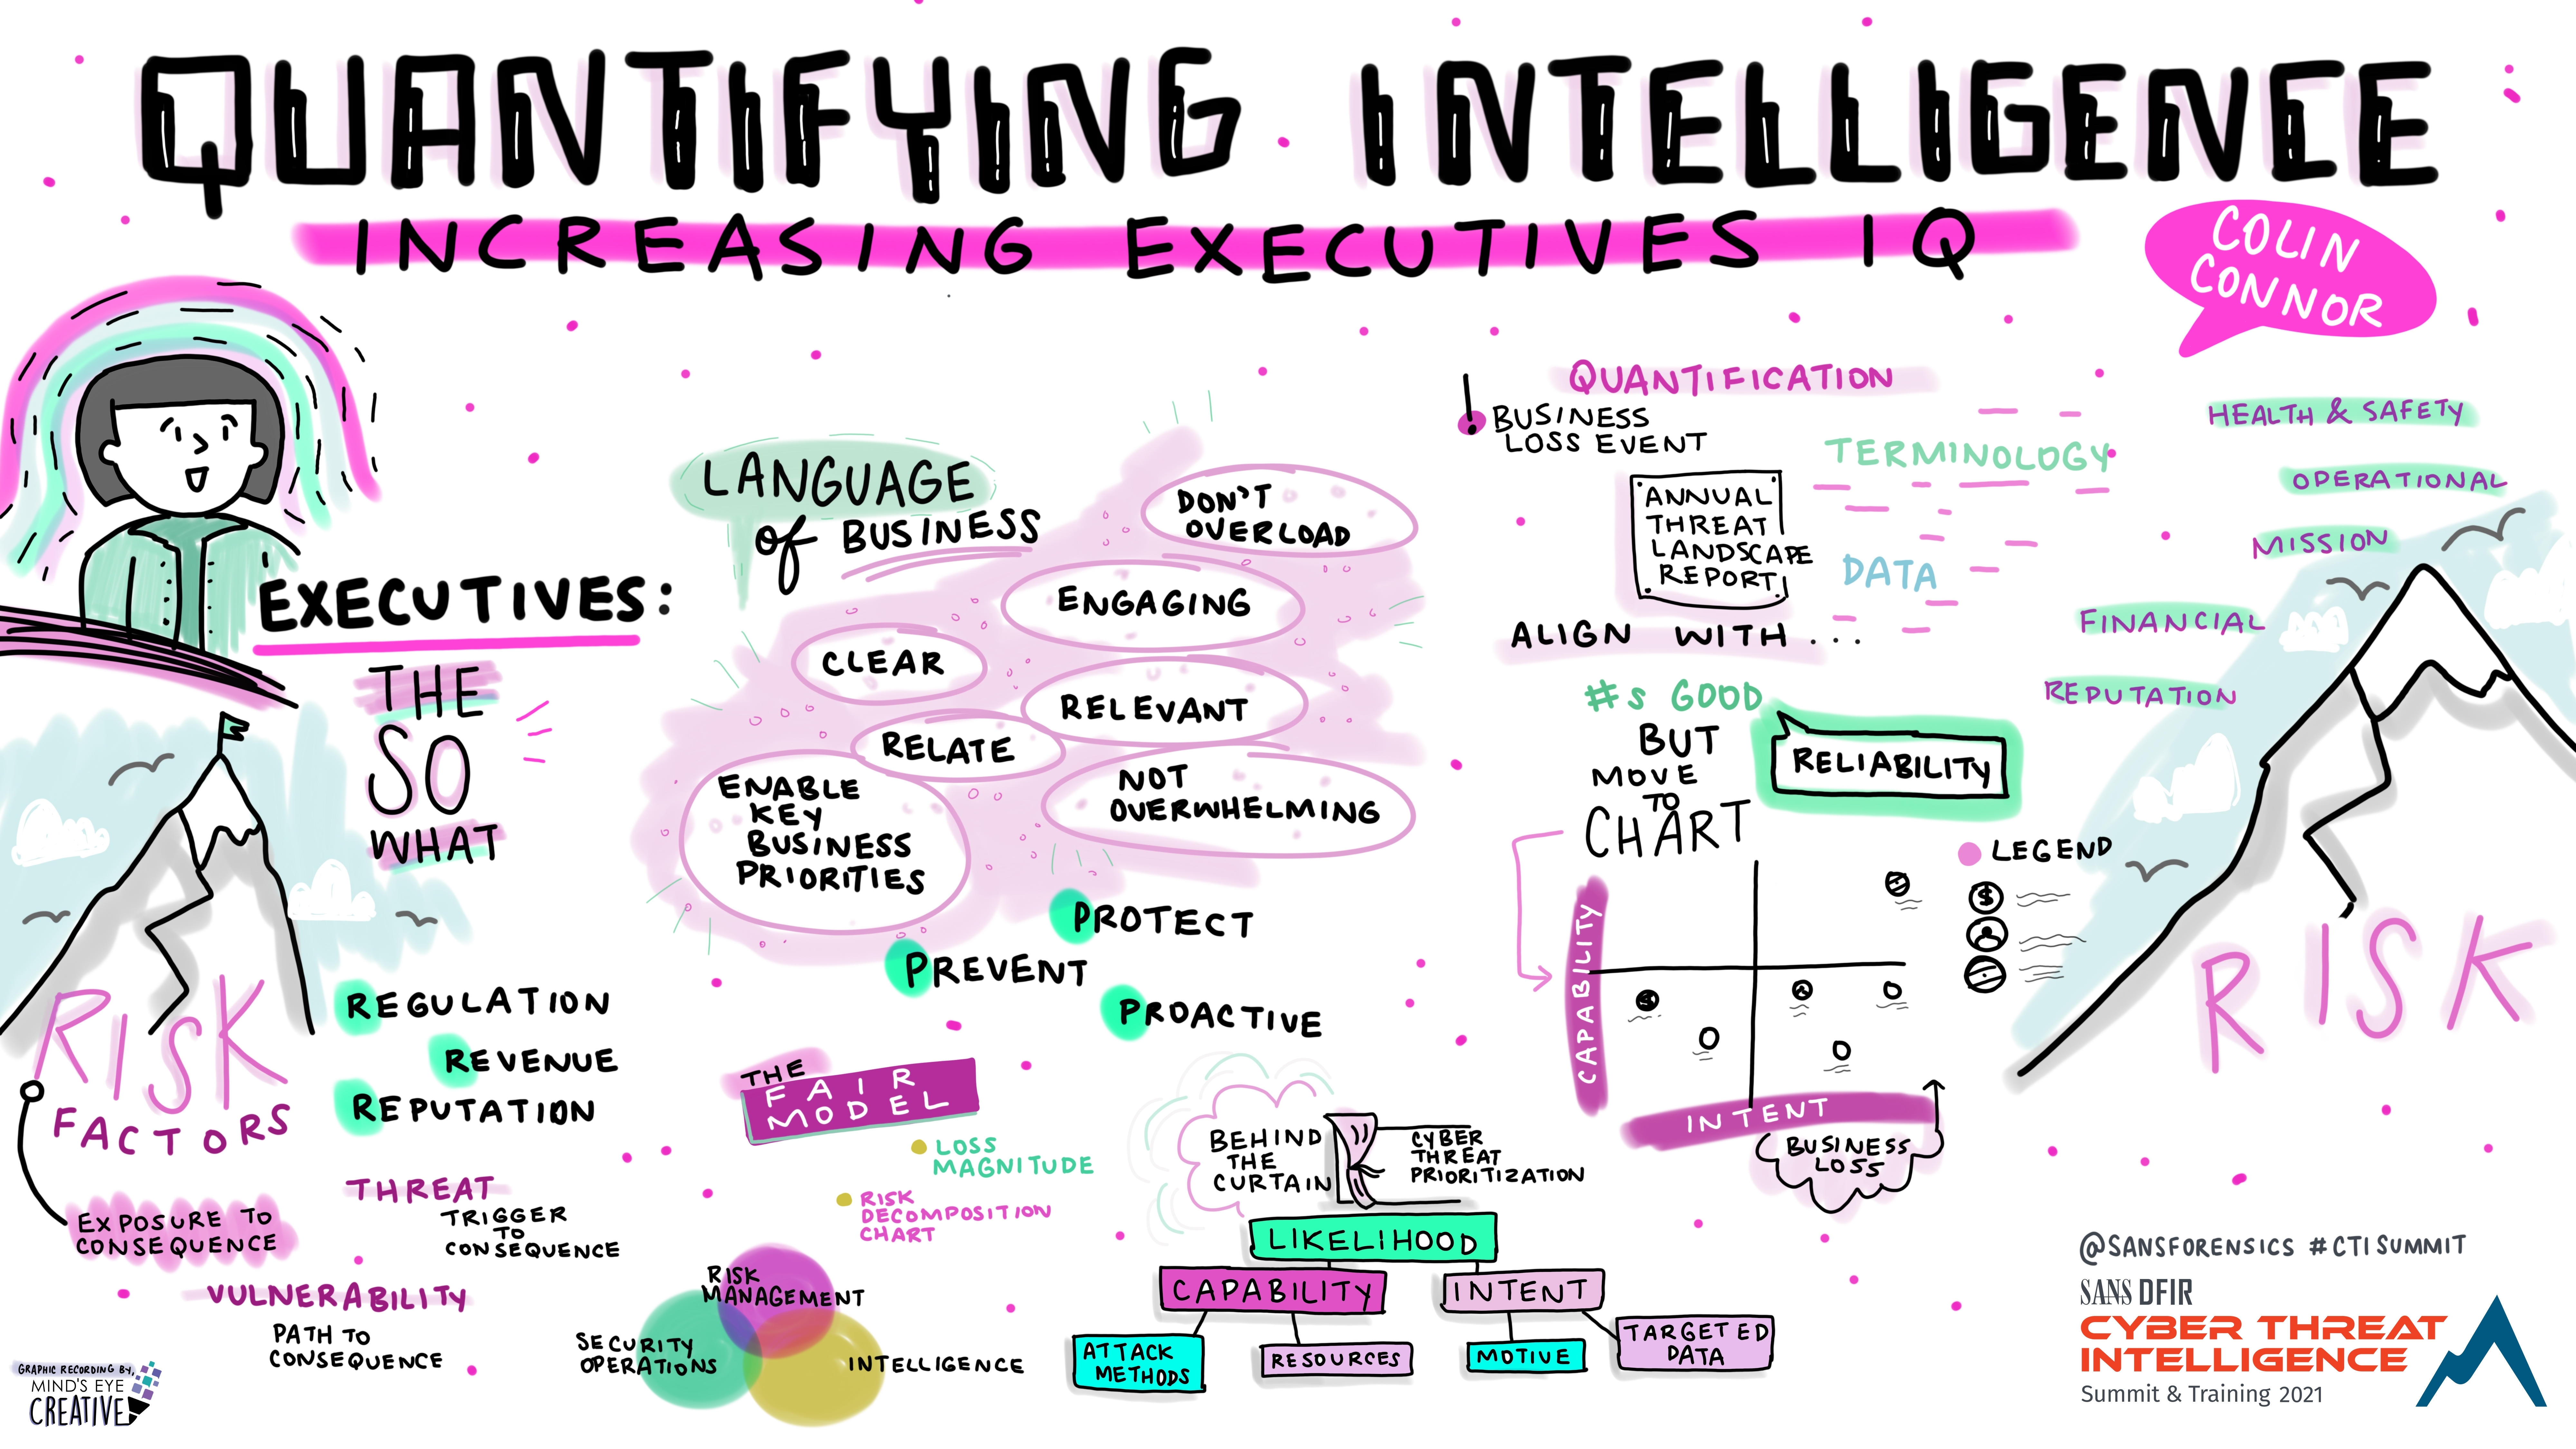 QUANTIFYING INTELLIGENCE
INCREASING EXECUTIVES IQ
COLIN
CONNOR
EXECUTIVES:
THE
SO
WHAT
RISK
FACTORS
EXPOSURE TO
CONSEQUENCE
REGULATION
REVENUE
REPUTATION
THREAT
TRIGGER
TO
CONSEQUENCE
VULNERABILITY
PATH TO
CONSEQUENCE
LANGUAGE
of BUSINESS
DON'T
OVERLOAD
ENGAGING
CLEAR
RELEVANT
RELATE
ENABLE
KEY
BUSINESS
PRIORITIES
NOT
OVERWHELMING
PROTECT
PREVENT
PROACTIVE
THE
FAIR
MODEL
LOSS
MAGNITUDE
RISK
DECOMPOSITION
CHART
RISK
MANAGEMENT
SECURITY
OPERATIONS
INTELLIGENCE
BEHIND
THE
CURTAIN
CYBER
THREAT
PRIORITIZATION
LIKELIHOOD
CAPABILITY
INTENT
ATTACK
METHODS
RESOURCES
MOTIVE
TARGETED
DATA
QUANTIFICATION
! BUSINESS
LOSS EVENT
TERMINOLOGY
ANNUAL
THREAT
LANDSCAPE
REPORT!
DATA
ALIGN WITH...
#s GOOD
BUT
MOVE
TO
CHART
RELIABILITY
LEGEND
$
CAPABILITY
$
INTENT
BUSINESS
LOSS
HEALTH & SAFETY
OPERATIONAL
MISSION
FINANCIAL
REPUTATION
RISK
@SANSFORENSICS #CTISUMMIT
SANS DFIR
CYBER THREAT
INTELLIGENCE
Summit & Training 2021
GRAPHIC RECORDING BY,
MIND'S EYE
CREATIVE